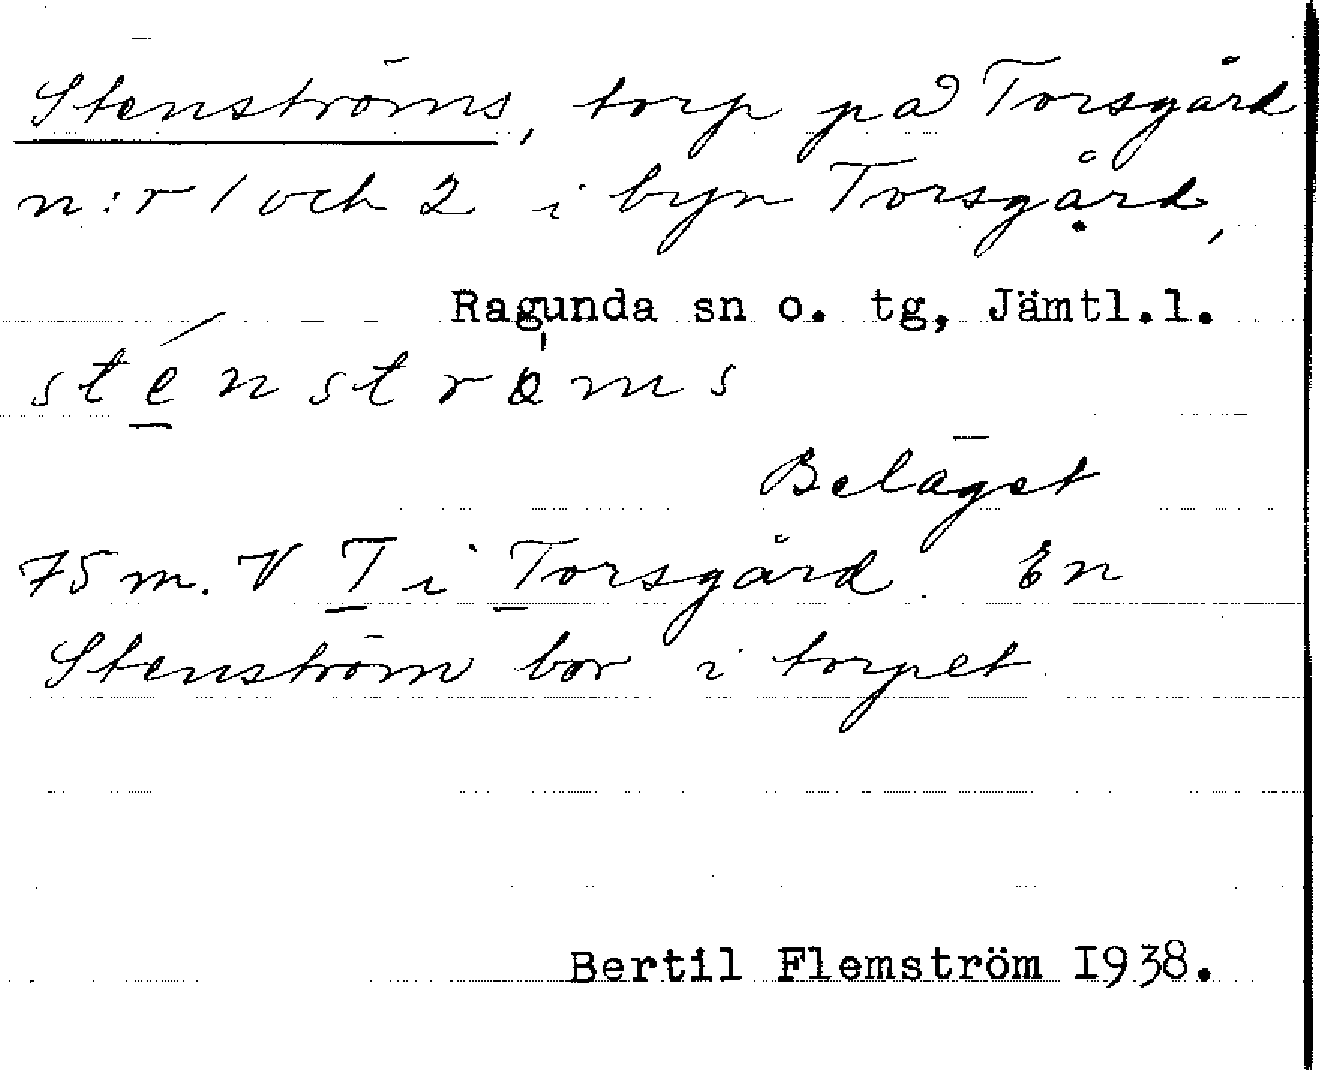 Stenströms, torp på Torsgård
n:r 1 och 2 i byn Torsgård,
Ragunda sn o. tg, Jämtl.l.
sténstrɷ̀ms
Beläget
75 m. V T i Torsgård. En
Stenström bor i torpet.
Bertil Flemström 1938.